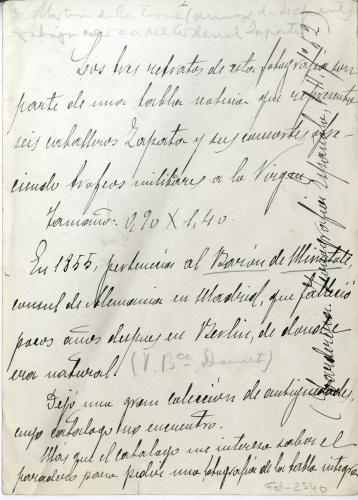 D. Martin de la Torre (amigo de
trabajo acerca del Cardenal Zapata
Los tres retratos de esta fotografía son
parte de una tabla votiva que representa
seis caballeros Zapata y sus consortes ofre-
ciendo trofeos militares a la Virgen.
Tamaño: 2,90 X 1,40.
En 1855, pertenecía al Barón de Minutoli
consul de Alemania en Madrid, que falleció
pocos años despues en Berlin, de donde
era natural. (V. Bca Dauvet)
Dejó una gran colección de antigüedades,
cuyo catalogo no encuentro.
Mas que el catalogo me interesa saber el
paradero para pedir una fotografía de la tabla integra
(Carderera: Iconografía Española, T. II, nº
Fot-2540